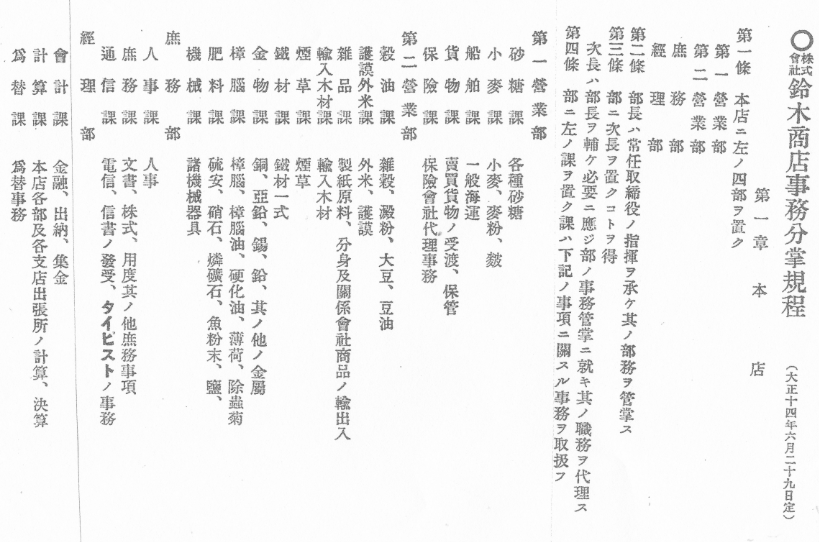 ○株式會社鈴木商店事務分掌規程 (大正十四年六月二十九日定)
第一章 本店
第一條 本店ニ左ノ四部ヲ置ク
第一營業部
第二營業部
庶務部
經理部
第二條 部長ハ常任取締役ノ指揮ヲ承ケ其ノ部務ヲ管掌ス
第三條 部ニ次長ヲ置クコトヲ得
次長ハ部長ヲ輔ケ必要ニ應ジ部ノ事務管掌ニ就キ其ノ職務ヲ代理ス
第四條 部ニ左ノ課ヲ置ク課ハ下記ノ事項ニ關スル事務ヲ取扱フ
第一營業部
砂糖課 各種砂糖
小麥課 小麥、麥粉、麩
船舶課 一般海運
貨物課 賣買貨物ノ受渡、保管
保險課 保險會社代理事務
第二營業部
穀油課 雜穀、澱粉、大豆、豆油
護謨外米課 外米、護謨
雜品課 製紙原料、分身及關係會社商品ノ輸出入
輸入木材課 輸入木材
煙草課 煙草
鐵材課 鐵材一式
金物課 銅、亞鉛、錫、鉛、其ノ他ノ金屬
樟腦課 樟腦、樟腦油、硬化油、薄荷、除蟲菊
肥料課 硫安、硝石、燐礦石、魚粉末、鹽、
機械課 諸機械器具
庶務部
人事課 人事
庶務課 文書、株式、用度其ノ他庶務事項
通信課 電信、信書ノ發受、タイピストノ事務
經理部
會計課 金融、出納、集金
計算課 本店各部及各支店出張所ノ計算、決算
爲替課 爲替事務